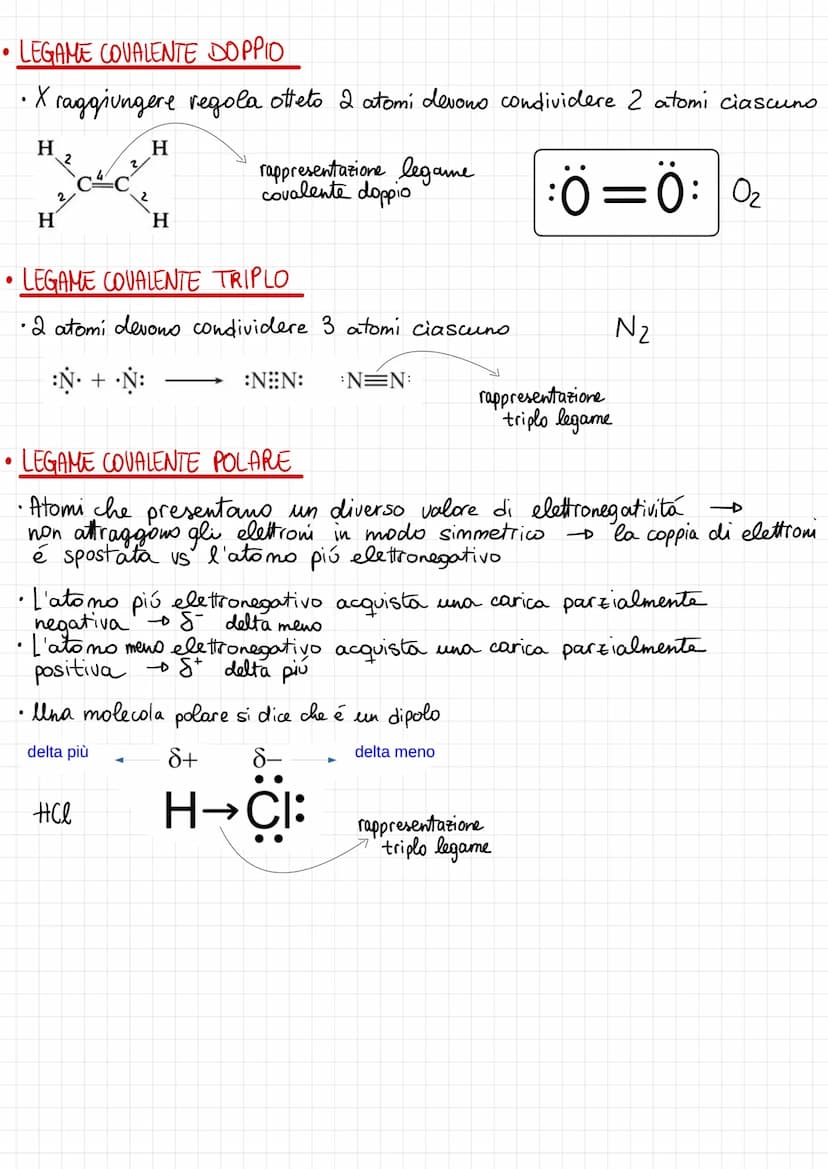 • LEGAME COVALENTE DOPPIO
• X raggiungere regola otteto 2 atomi devono condividere 2 atomi ciascuno
H 2 2 H
C 4 C
2 2
H H
rappresentazione legame
covalente doppio
:Ö=Ö: O2
• LEGAME COVALENTE TRIPLO
• 2 atomi devono condividere 3 atomi ciascuno
N2
:Ṇ̇· + ·Ṇ̇: ⟶ :N⋮⋮N: :N≡N:
rappresentazione
triplo legame
• LEGAME COVALENTE POLARE
• Atomi che presentano un diverso valore di elettronegativitá →
non attraggono gli elettroni in modo simmetrico → la coppia di elettroni
é spostata vs l'atomo piú elettronegativo
• L'atomo piú elettronegativo acquista una carica parzialmente
negativa → δ⁻ delta meno
• L'atomo meno elettronegativo acquista una carica parzialmente
positiva → δ⁺ delta piú
• Una molecola polare si dice che é un dipolo
delta più δ+ δ− delta meno
HCl H→Cl:
rappresentazione
triplo legame